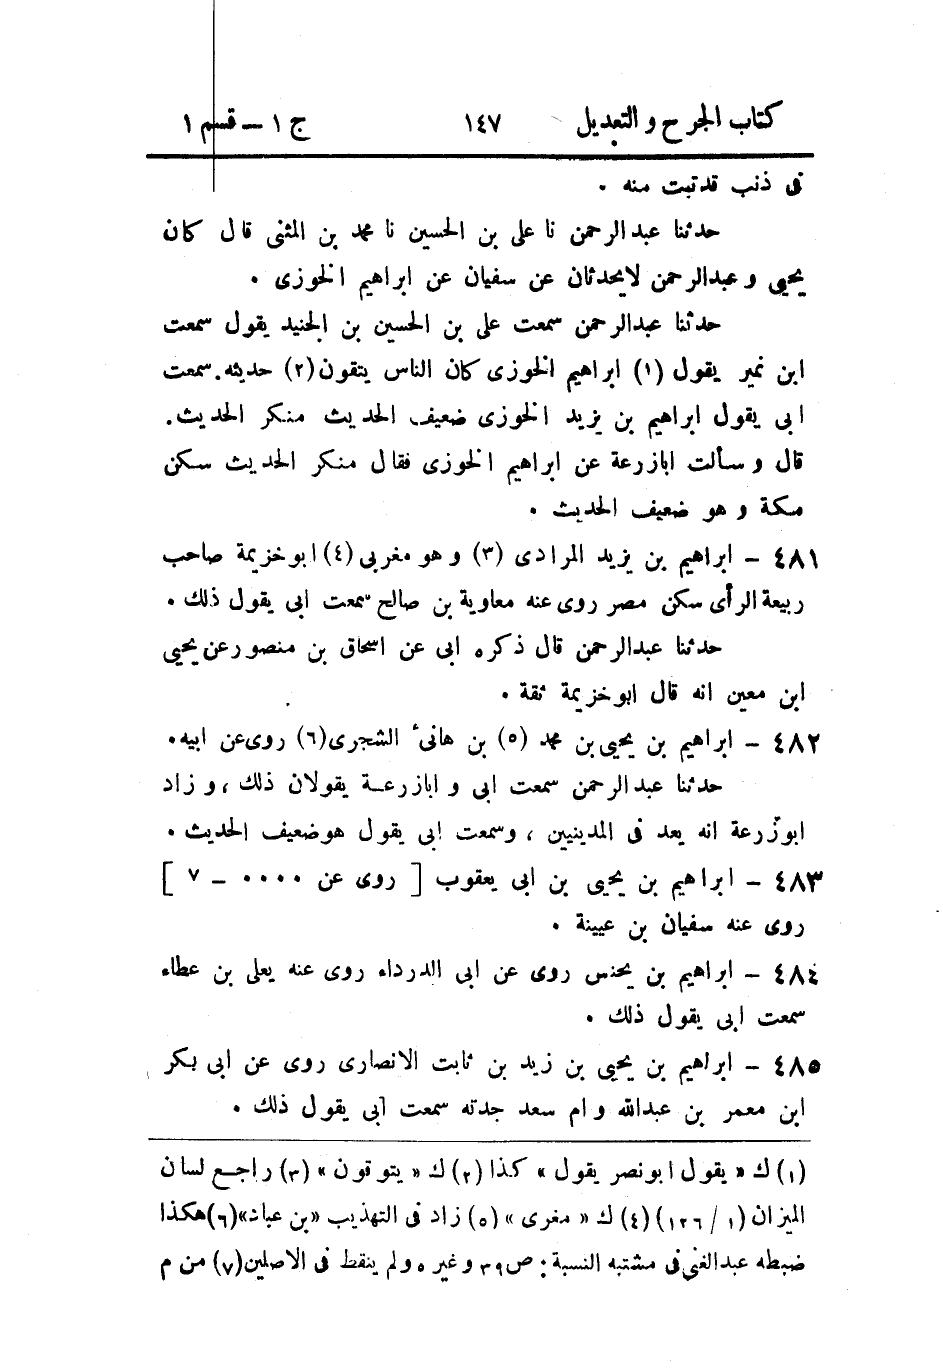 كتاب الجرح و التعديل ١٤٧ ج ١ – قسم ١
فى ذنب قد تبت منه .
حدثنا عبد الرحمن نا على بن الحسين نا محمد بن المثنى قال كان
يحيى و عبد الرحمن لا يحدثان عن سفيان عن ابراهيم الخوزى .
حدثنا عبد الرحمن سمعت على بن الحسين بن الجنيد يقول سمعت
ابن نمير يقول (١) ابراهيم الخوزى كان الناس يتقون (٢) حديثه . سمعت
ابى يقول ابراهيم بن يزيد الخوزى ضعيف الحديث منكر الحديث .
قال و سألت ابا زرعة عن ابراهيم الخوزى فقال منكر الحديث سكن
مكة و هو ضعيف الحديث .
٤٨١ – ابراهيم بن يزيد المرادى (٣) و هو مغربى (٤) ابو خزيمة صاحب
ربيعة الرأى سكن مصر روى عنه معاوية بن صالح سمعت ابى يقول ذلك .
حدثنا عبد الرحمن قال ذكره ابى عن اسحاق بن منصور عن يحيى
ابن معين انه قال ابو خزيمة ثقة .
٤٨٢ – ابراهيم بن يحيى بن محمد (٥) بن هانىٔ الشجرى (٦) روى عن ابيه .
حدثنا عبد الرحمن سمعت ابى و ابا زرعـة يقولان ذلك ، و زاد
ابو زرعة انه يعد فى المدينيين ، وسمعت ابى يقول هو ضعيف الحديث .
٤٨٣ – ابراهيم بن يحيى بن ابى يعقوب [ روى عن .... – ٧ ]
روى عنه سفيان بن عيينة .
٤٨٤ – ابراهيم بن يحنس روى عن ابى الدرداء روى عنه يعلى بن عطاء
سمعت ابى يقول ذلك .
٤٨٥ – ابراهيم بن يحيى بن زيد بن ثابت الانصارى روى عن ابى بكر
ابن معمر بن عبد الله و ام سعد جدته سمعت ابى يقول ذلك .
(١) ك « يقول ابو نصر يقول » كذا (٢) ك « يتوقون » (٣) راجع لسان
الميزان (١ / ١٢٦) (٤) ك « مغرى » (٥) زاد فى التهذيب «بن عباد» (٦) هكذا
ضبطه عبد الغنى فى مشتبه النسبة : ص ٣٩ وغيره ولم ينقط فى الاصلين (٧) من م